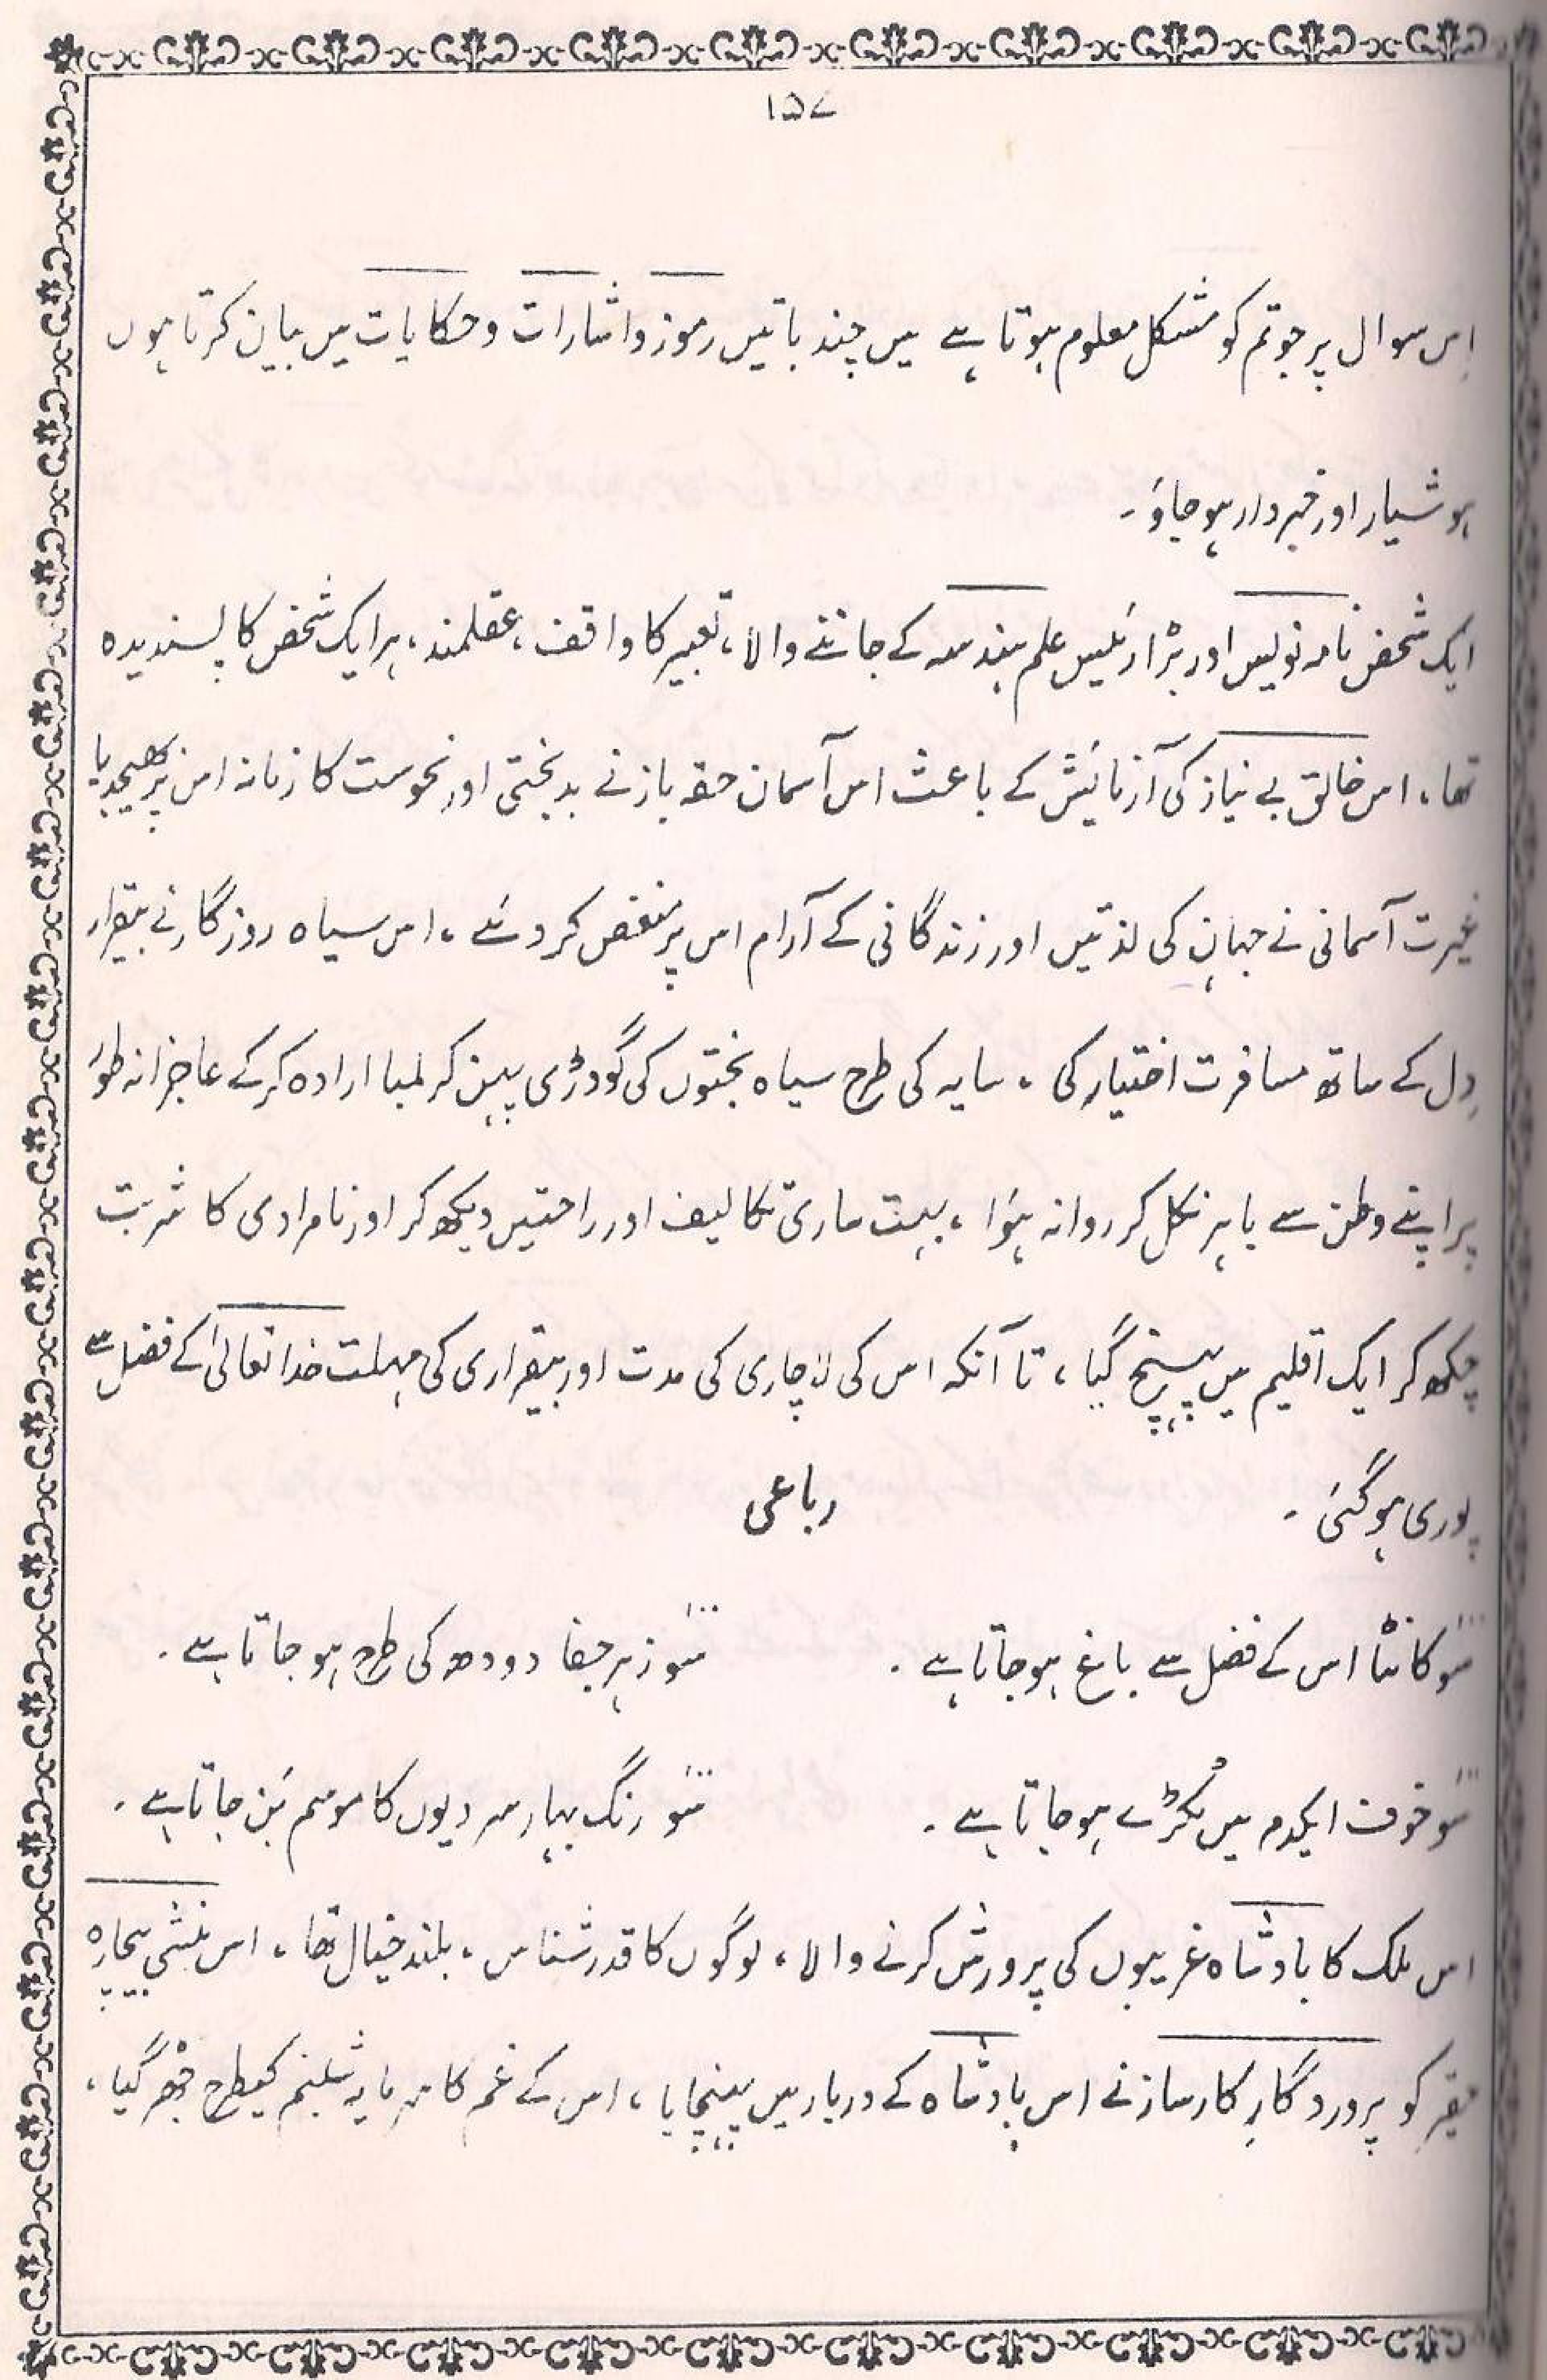 ۱۵۷
اِس سوال پر جو تم کو مشکل معلوم ہوتا ہے میں چند باتیں رموز و اشارات و حکایات میں بیان کرتا ہوں
ہوشیار اور خبردار ہو جاؤ۔
ایک شخص نامہ نویس اور بڑا رئیس علم ہندسہ کے جاننے والا، تعبیر کا واقف، عقلمند، ہر ایک شخص کا پسندیدہ
تھا، اس خالق بے نیاز کی آزمائش کے باعث اس آسمان حقہ باز نے بدبختی اور نحوست کا زمانہ اس پر بھیجدیا
غیرت آسمانی نے جہان کی لذتیں اور زندگانی کے آرام اس پر منغص کر دئے، اس سیاہ روزگار نے بیقرار
دِل کے ساتھ مسافرت اختیار کی، سایہ کی طرح سیاہ بختوں کی گودڑی پہن کر لمبا ارادہ کر کے عاجزانہ طور
پر اپنے وطن سے باہر نکل کر روانہ ہؤا، بہت ساری تکالیف اور راحتیں دیکھ کر اور نامرادی کا شربت
چکھ کر ایک اقلیم میں پہنچ گیا، تا آنکہ اس کی لاچاری کی مدت اور بیقراری کی مہلت خدا تعالیٰ کے فضل سے
پوری ہو گئی۔ رباعی
سَو کانٹا اس کے فضل سے باغ ہو جاتا ہے۔ سَو زہر جفا دودھ کی طرح ہو جاتا ہے۔
سَو خوف ایکدم میں ٹکڑے ہو جاتا ہے۔ سَو رنگ بہار سردیوں کا موسم بَن جاتا ہے۔
اس ملک کا بادشاہ غریبوں کی پرورش کرنے والا، لوگوں کا قدر شناس، بلند خیال تھا، اس منشی بیچارہ
حقیر کو پروردگارِ کارساز نے اس بادشاہ کے دربار میں پہنچایا، اس کے غم کا سرمایہ شبنم کیطرح جھڑ گیا،